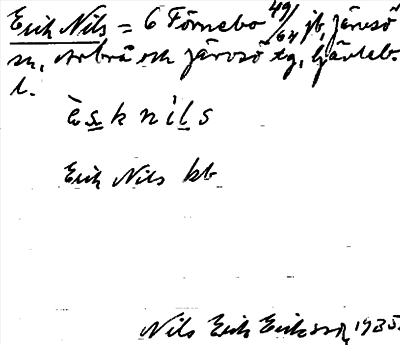 Erik Nils = 6 Förnebo 49/64 jb, Järvsö
sn, Arbrå och Järvsö tg, Hjävleb.
l.
è s k n ì l s
Erik Nils kb
Nils Erik Eriksson, 1935.